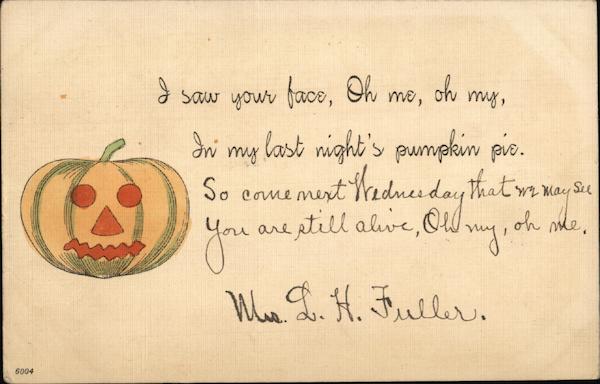 I saw your face, Oh me, oh my,
In my last night's pumpkin pie.
So come next Wednesday that we may see
You are still alive, Oh my, oh me.
Mrs. L. H. Fuller.
6004